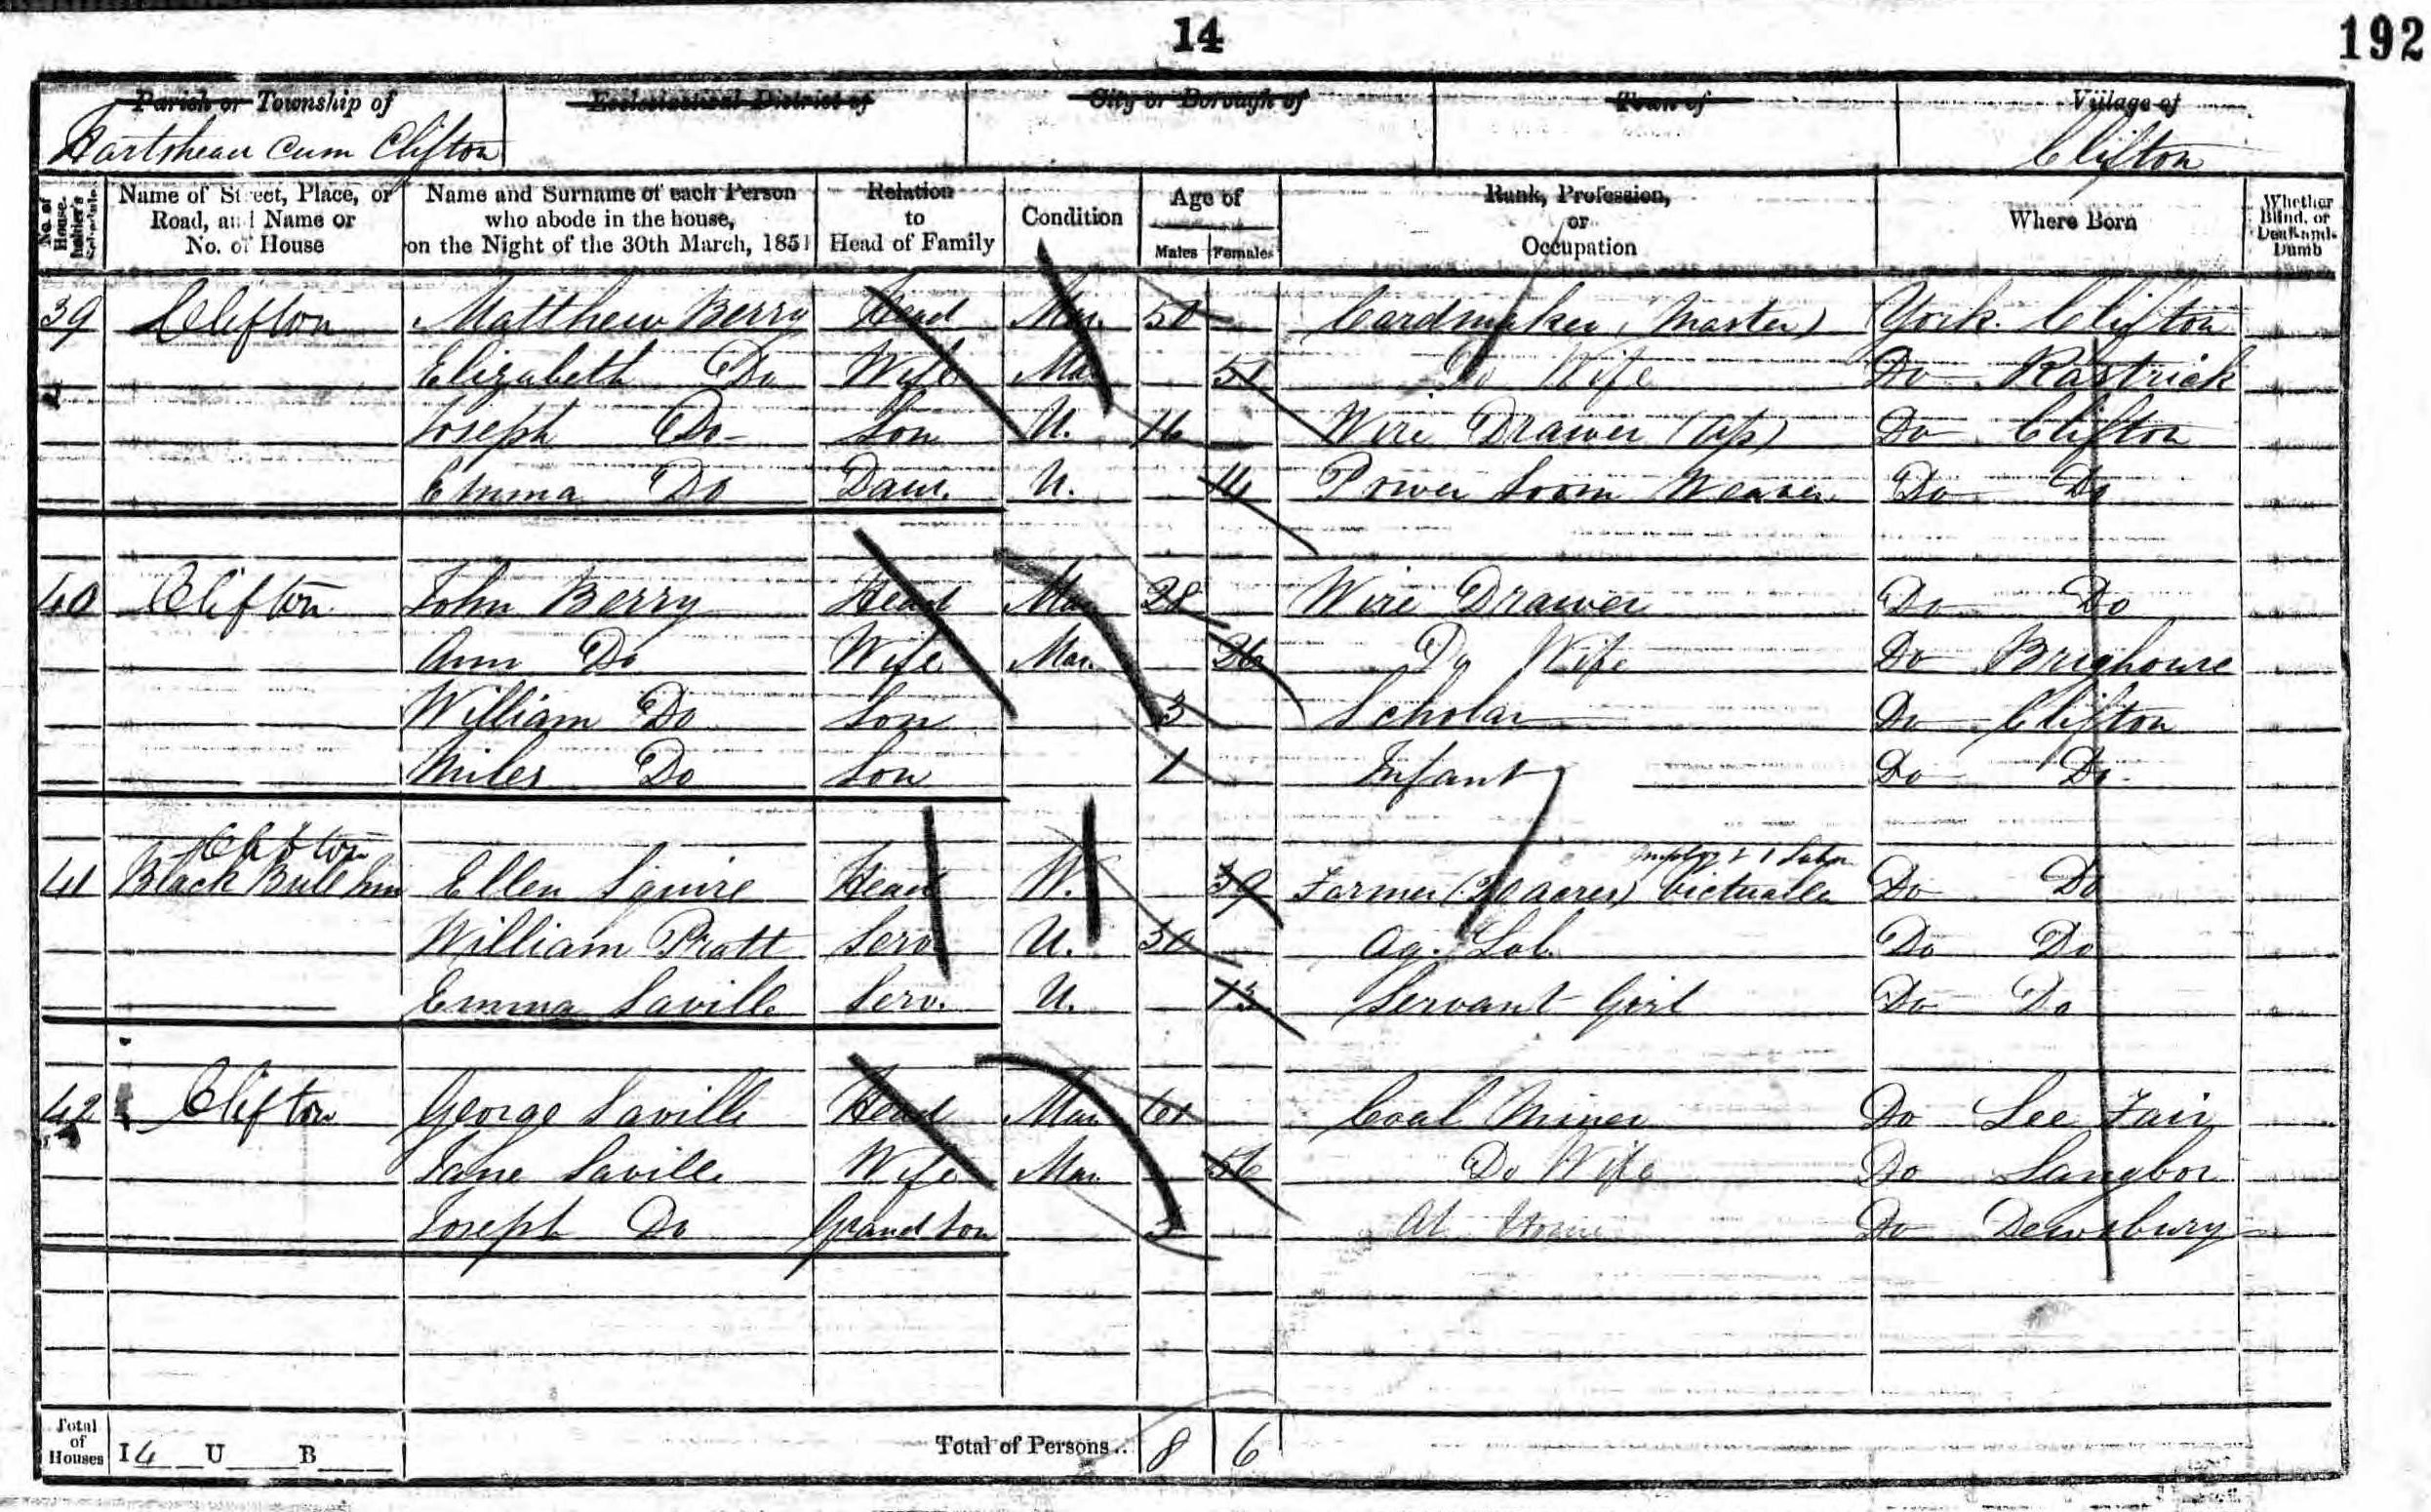 14
192
Parish or Township of
Ecclesiastical District of
City or Borough of
Town of
Village of
Hartshead cum Clifton
Clifton
No. of House-holder's Schedule
Name of Street, Place, or Road, and Name or No. of House
Name and Surname of each Person who abode in the house, on the Night of the 30th March, 1851
Relation to Head of Family
Condition
Age of
Males
Females
Rank, Profession, or Occupation
Where Born
Whether Blind, or Deaf-and-Dumb
39 Clifton Matthew Berry Head Mar. 50 Cardmaker (Master) York. Clifton
Elizabeth Do Wife Mar 51 Do Wife Do Rastrick
Joseph Do Son U. 16 Wire Drawer (Ap) Do Clifton
Emma Do Daur. U. 14 Power Loom Weaver Do Do
40 Clifton John Berry Head Mar 28 Wire Drawer Do Do
Ann Do Wife Mar. 26 Do Wife Do Brighouse
William Do Son 3 Scholar Do Clifton
Miles Do Son 1 Infant Do Do
Clifton
41 Black Bull Inn Ellen Squire Head W. 39 Farmer (20 acres) Victualler Do Do
William Pratt Serv U. 30 Ag. Lab. Do Do
Emma Saville Serv. U. 13 Servant Girl Do Do
42 Clifton George Saville Head Mar 61 Coal Miner Do Lee Fair
Jane Saville Wife Mar. 56 Do Wife Do
Joseph Do Grandson 3 At Home Do Dewsbury
Total of Houses I 4 U B Total of Persons.. 8 6